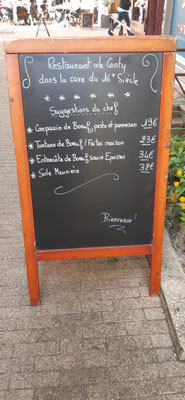 Restaurant Le Conty
dans la cave du 16e Siècle
Suggestions du chef
* Carpaccio de Boeuf, pesto et parmesan 19€
* Tartare de Boeuf / Frites maison 23€
* Entrecôte de Boeuf sauce Epoisses 34€
* Sole Meunière 38€
Bienvenue!